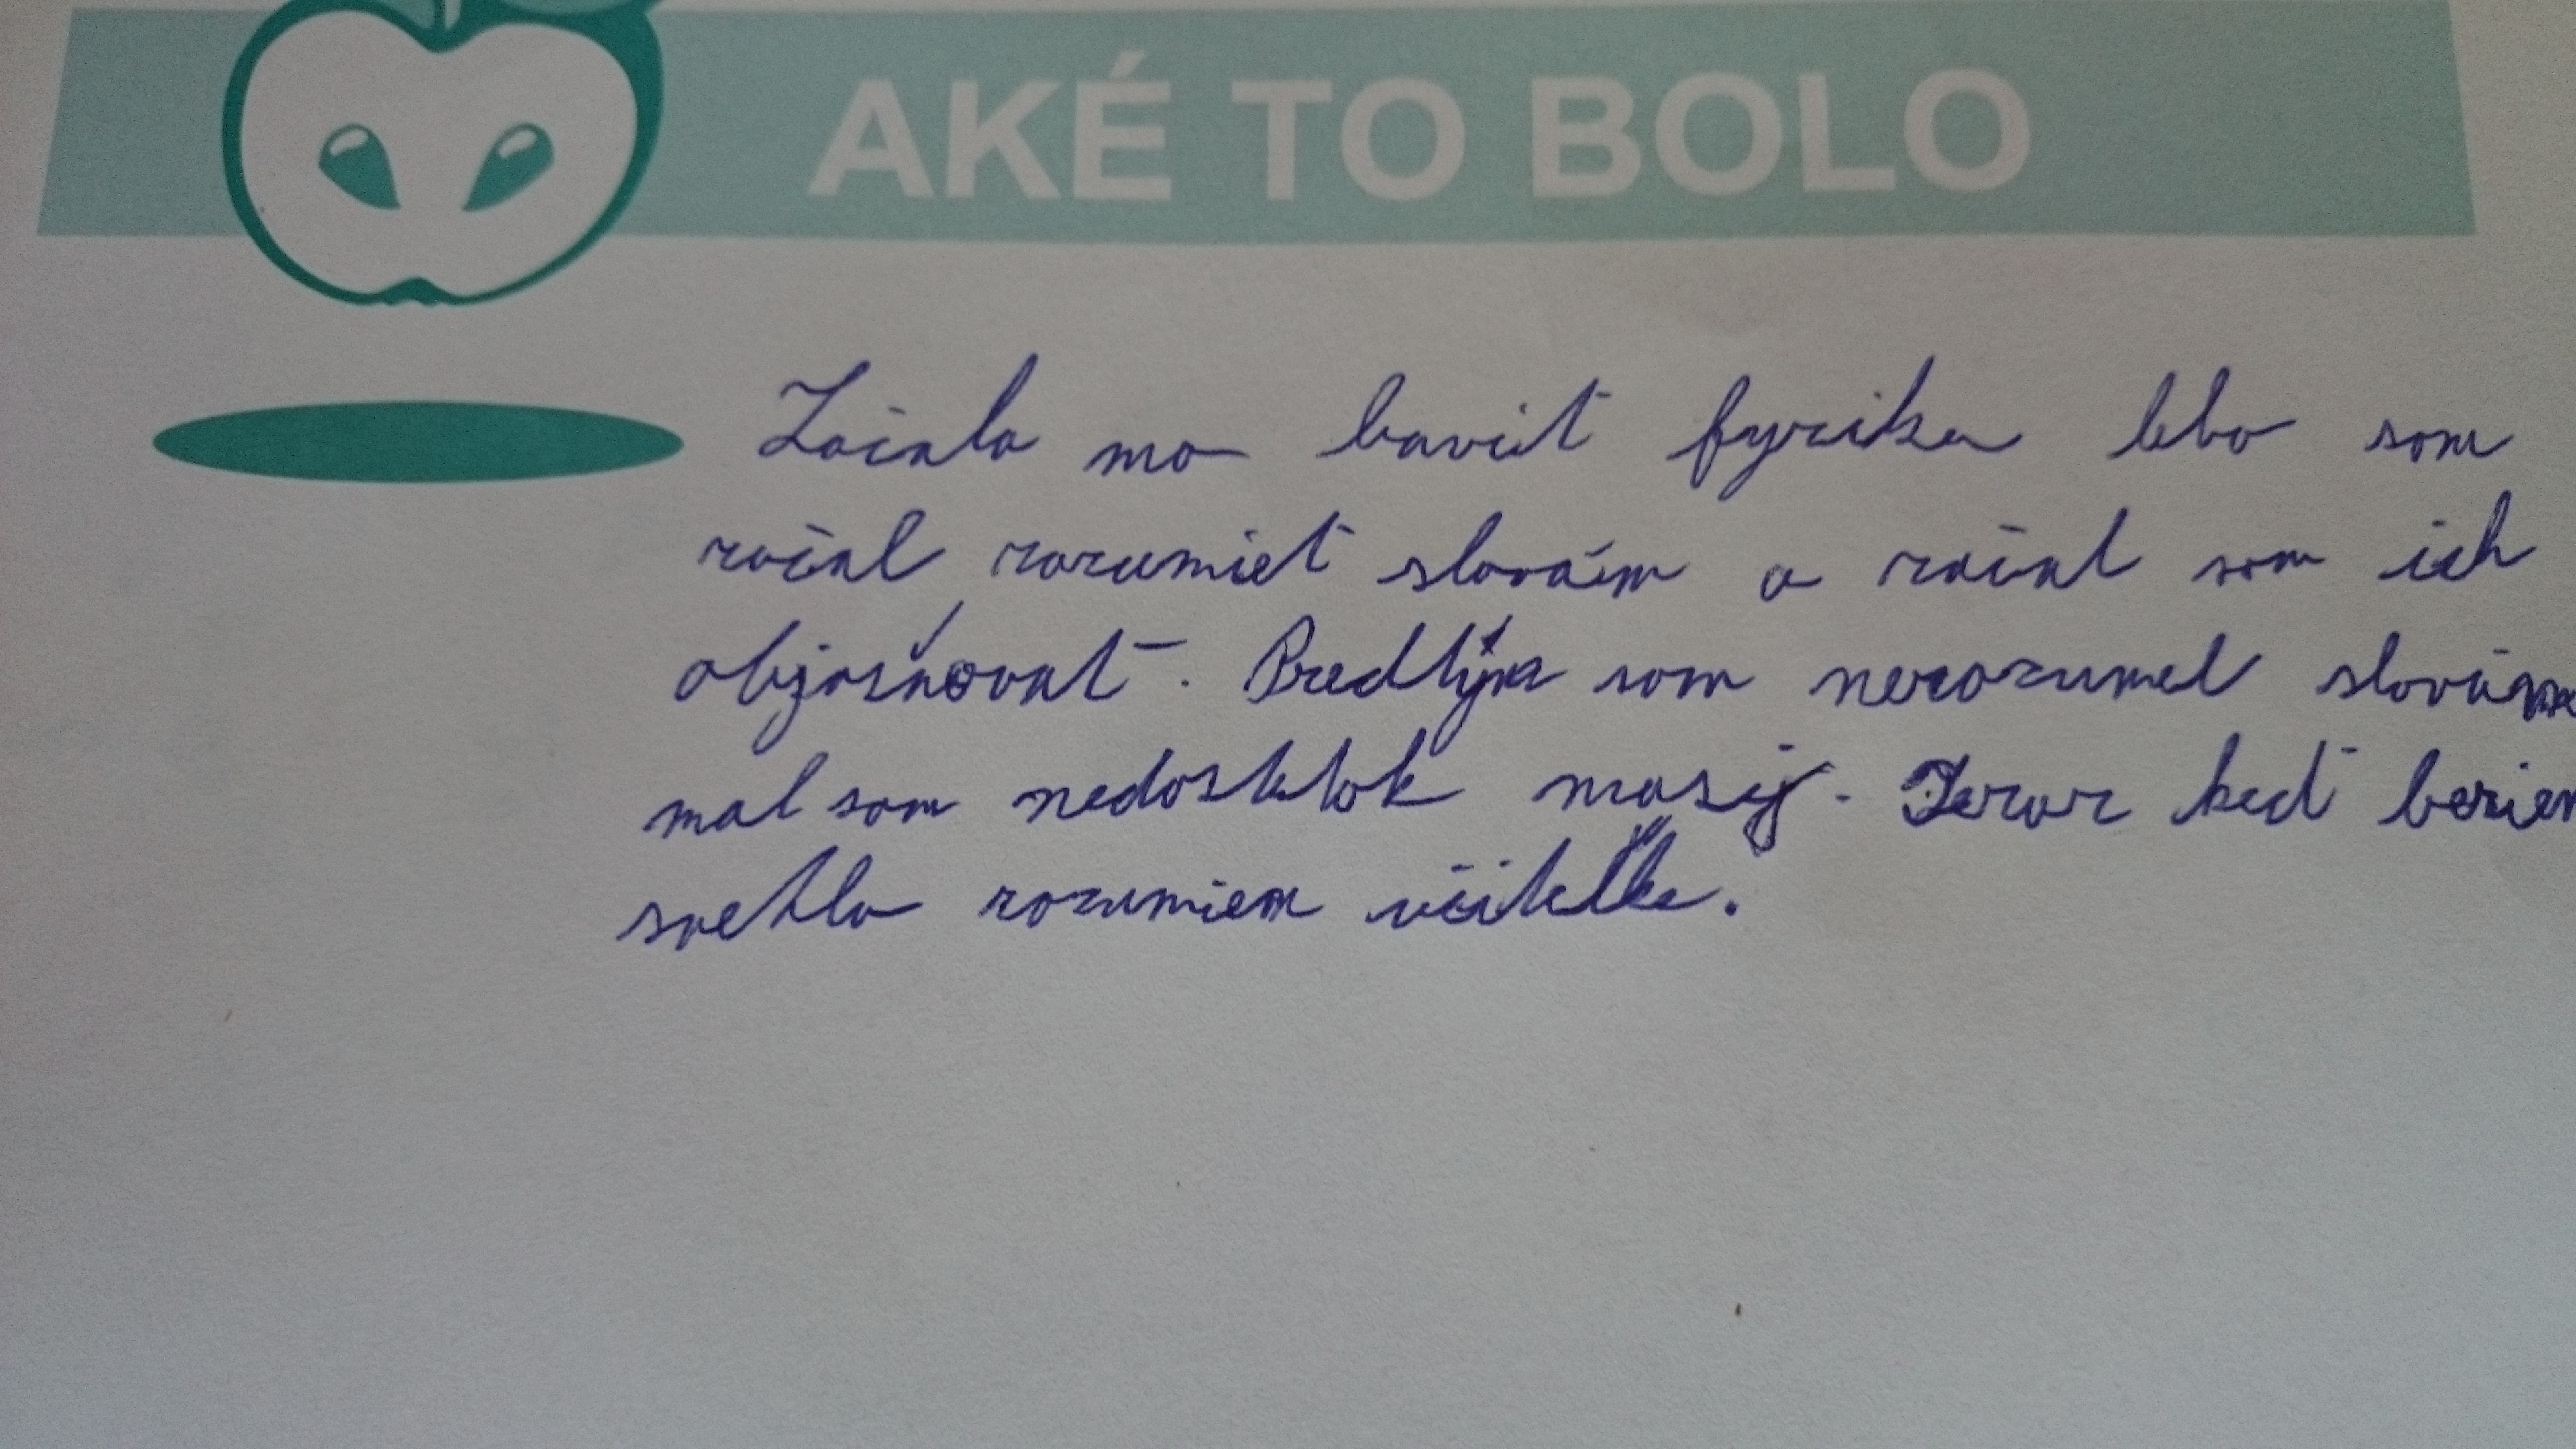 AKÉ TO BOLO
Začala ma baviť fyzika lebo som
začal rozumieť slovám a začal som ich
objasňovať. Predtým som nerozumel slovám
mal som nedostatok masy. Teraz keď
svetlo rozumiem učiteľke.